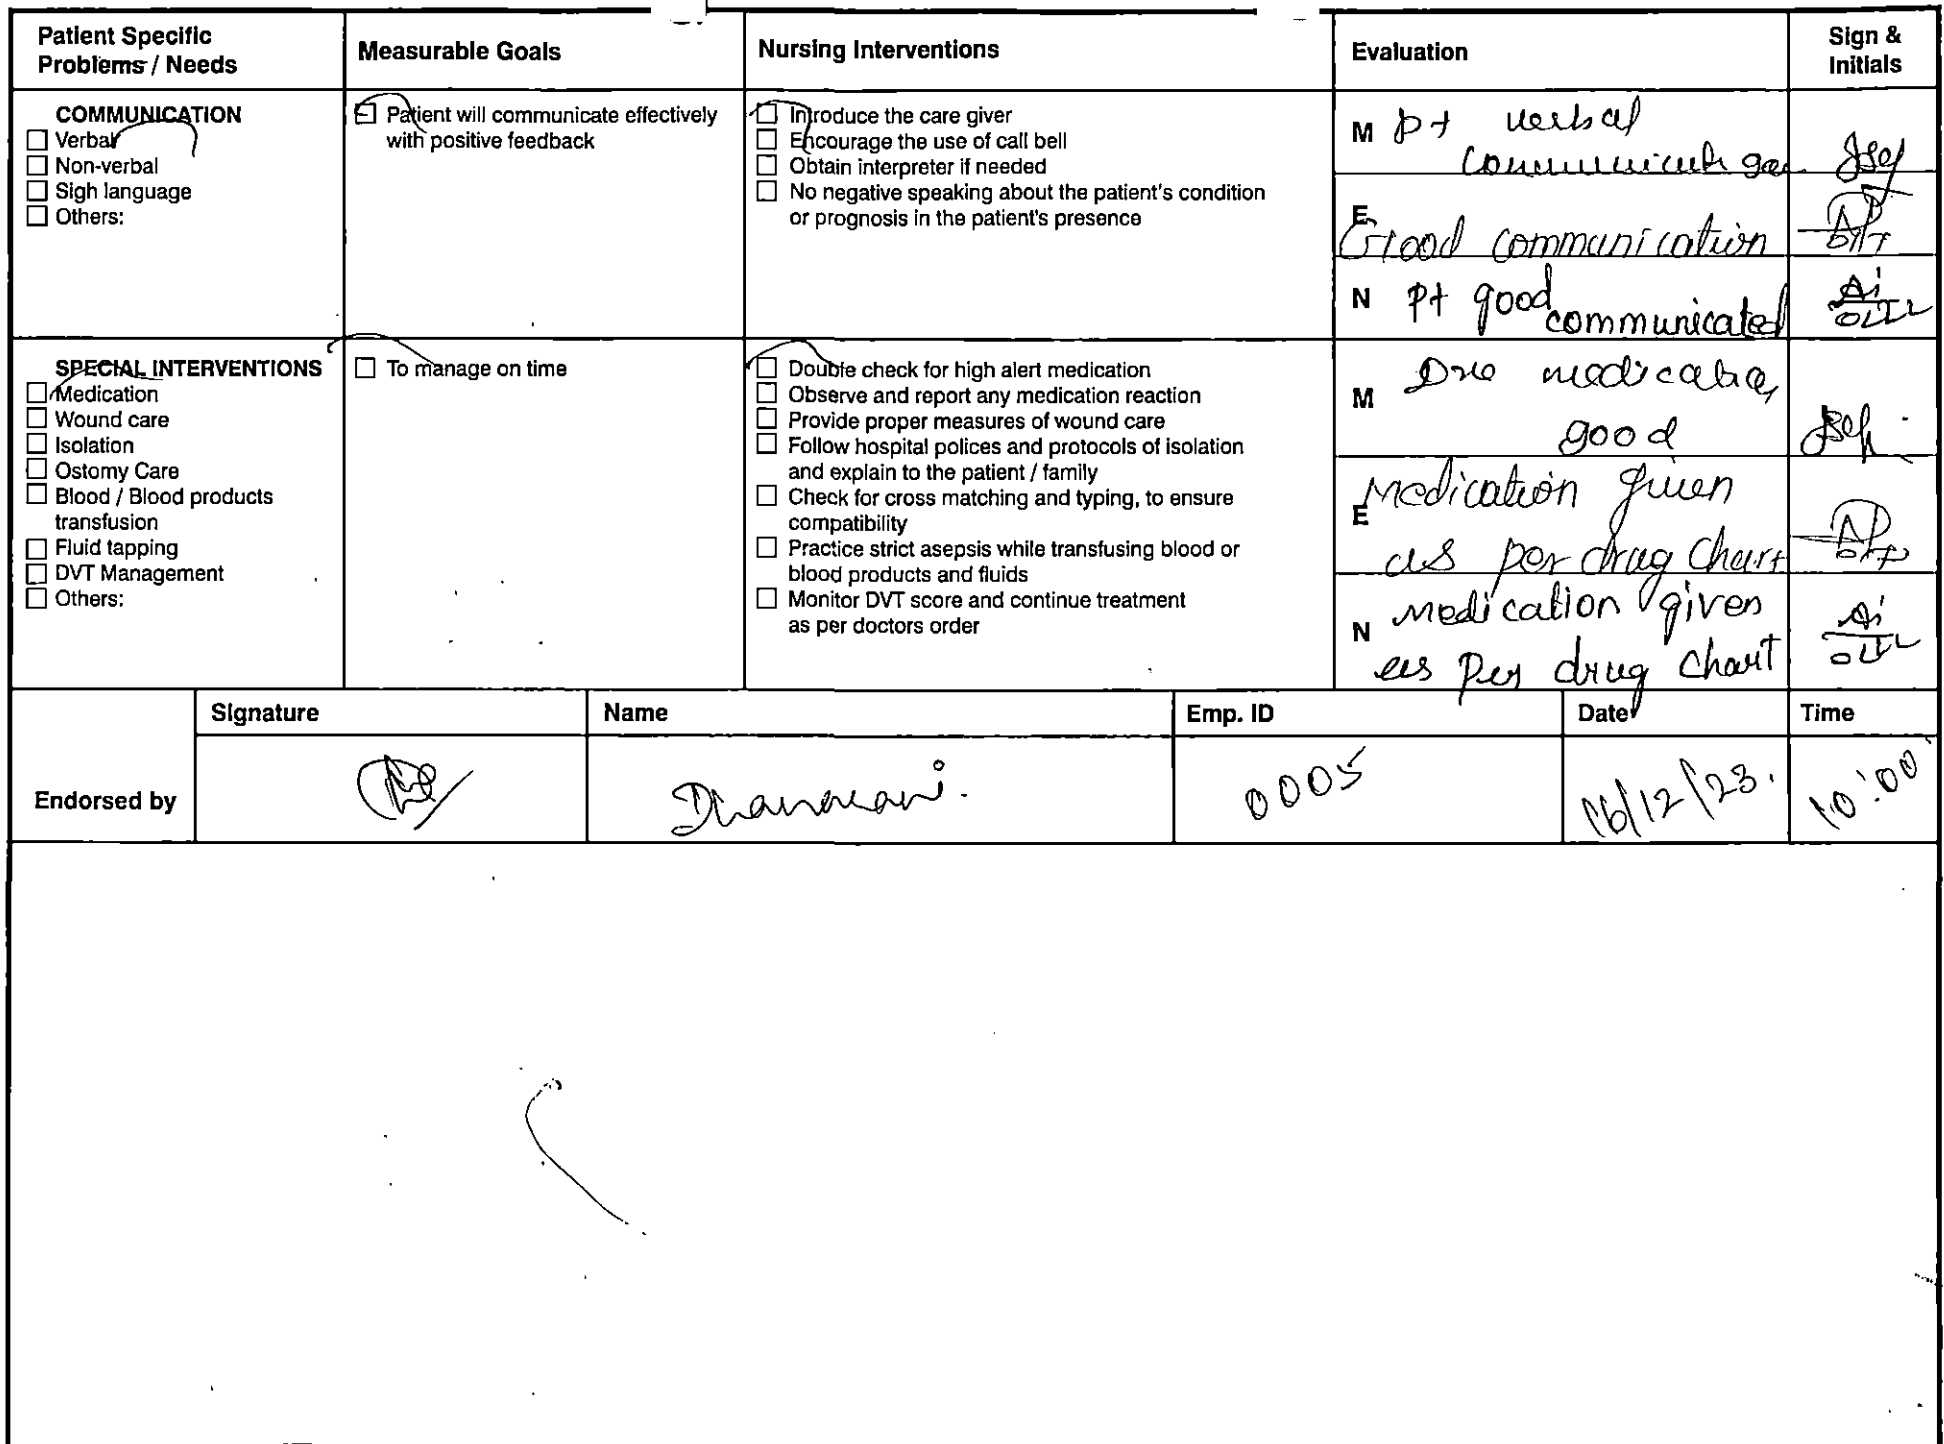 Patient Specific
Problems / Needs
Measurable Goals
Nursing Interventions
Evaluation
Sign &
Initials
COMMUNICATION
☐ Verbal
☐ Non-verbal
☐ Sigh language
☐ Others:
☐ Patient will communicate effectively
with positive feedback
☐ Introduce the care giver
☐ Encourage the use of call bell
☐ Obtain interpreter if needed
☐ No negative speaking about the patient's condition
or prognosis in the patient's presence
M pt verbal
E
Good communication
N pt good
communicated
SPECIAL INTERVENTIONS
☐ Medication
☐ Wound care
☐ Isolation
☐ Ostomy Care
☐ Blood / Blood products
transfusion
☐ Fluid tapping
☐ DVT Management
☐ Others:
☐ To manage on time
☐ Double check for high alert medication
☐ Observe and report any medication reaction
☐ Provide proper measures of wound care
☐ Follow hospital polices and protocols of isolation
and explain to the patient / family
☐ Check for cross matching and typing, to ensure
compatibility
☐ Practice strict asepsis while transfusing blood or
blood products and fluids
☐ Monitor DVT score and continue treatment
as per doctors order
M
good
E Medication given
as per drug chart
N Medication given
as Per drug chart
Signature
Name
Emp. ID
Date
Time
Endorsed by
0005
16/12/23.
10:00